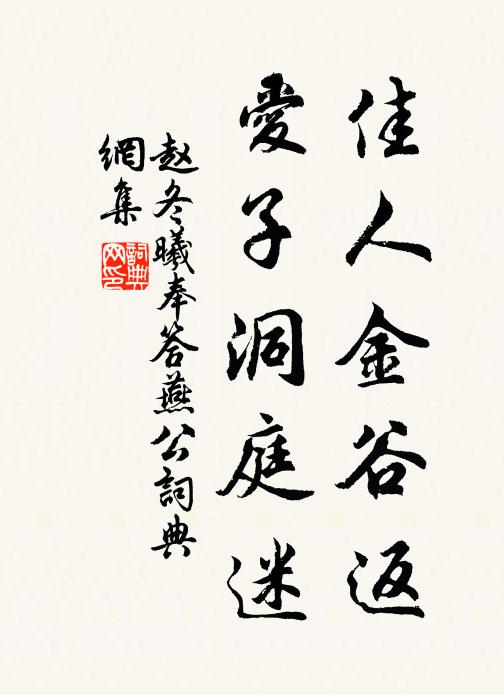 佳人金谷返
愛子洞庭迷
赵冬曦奉答燕公詞典
網集
詞典
网印